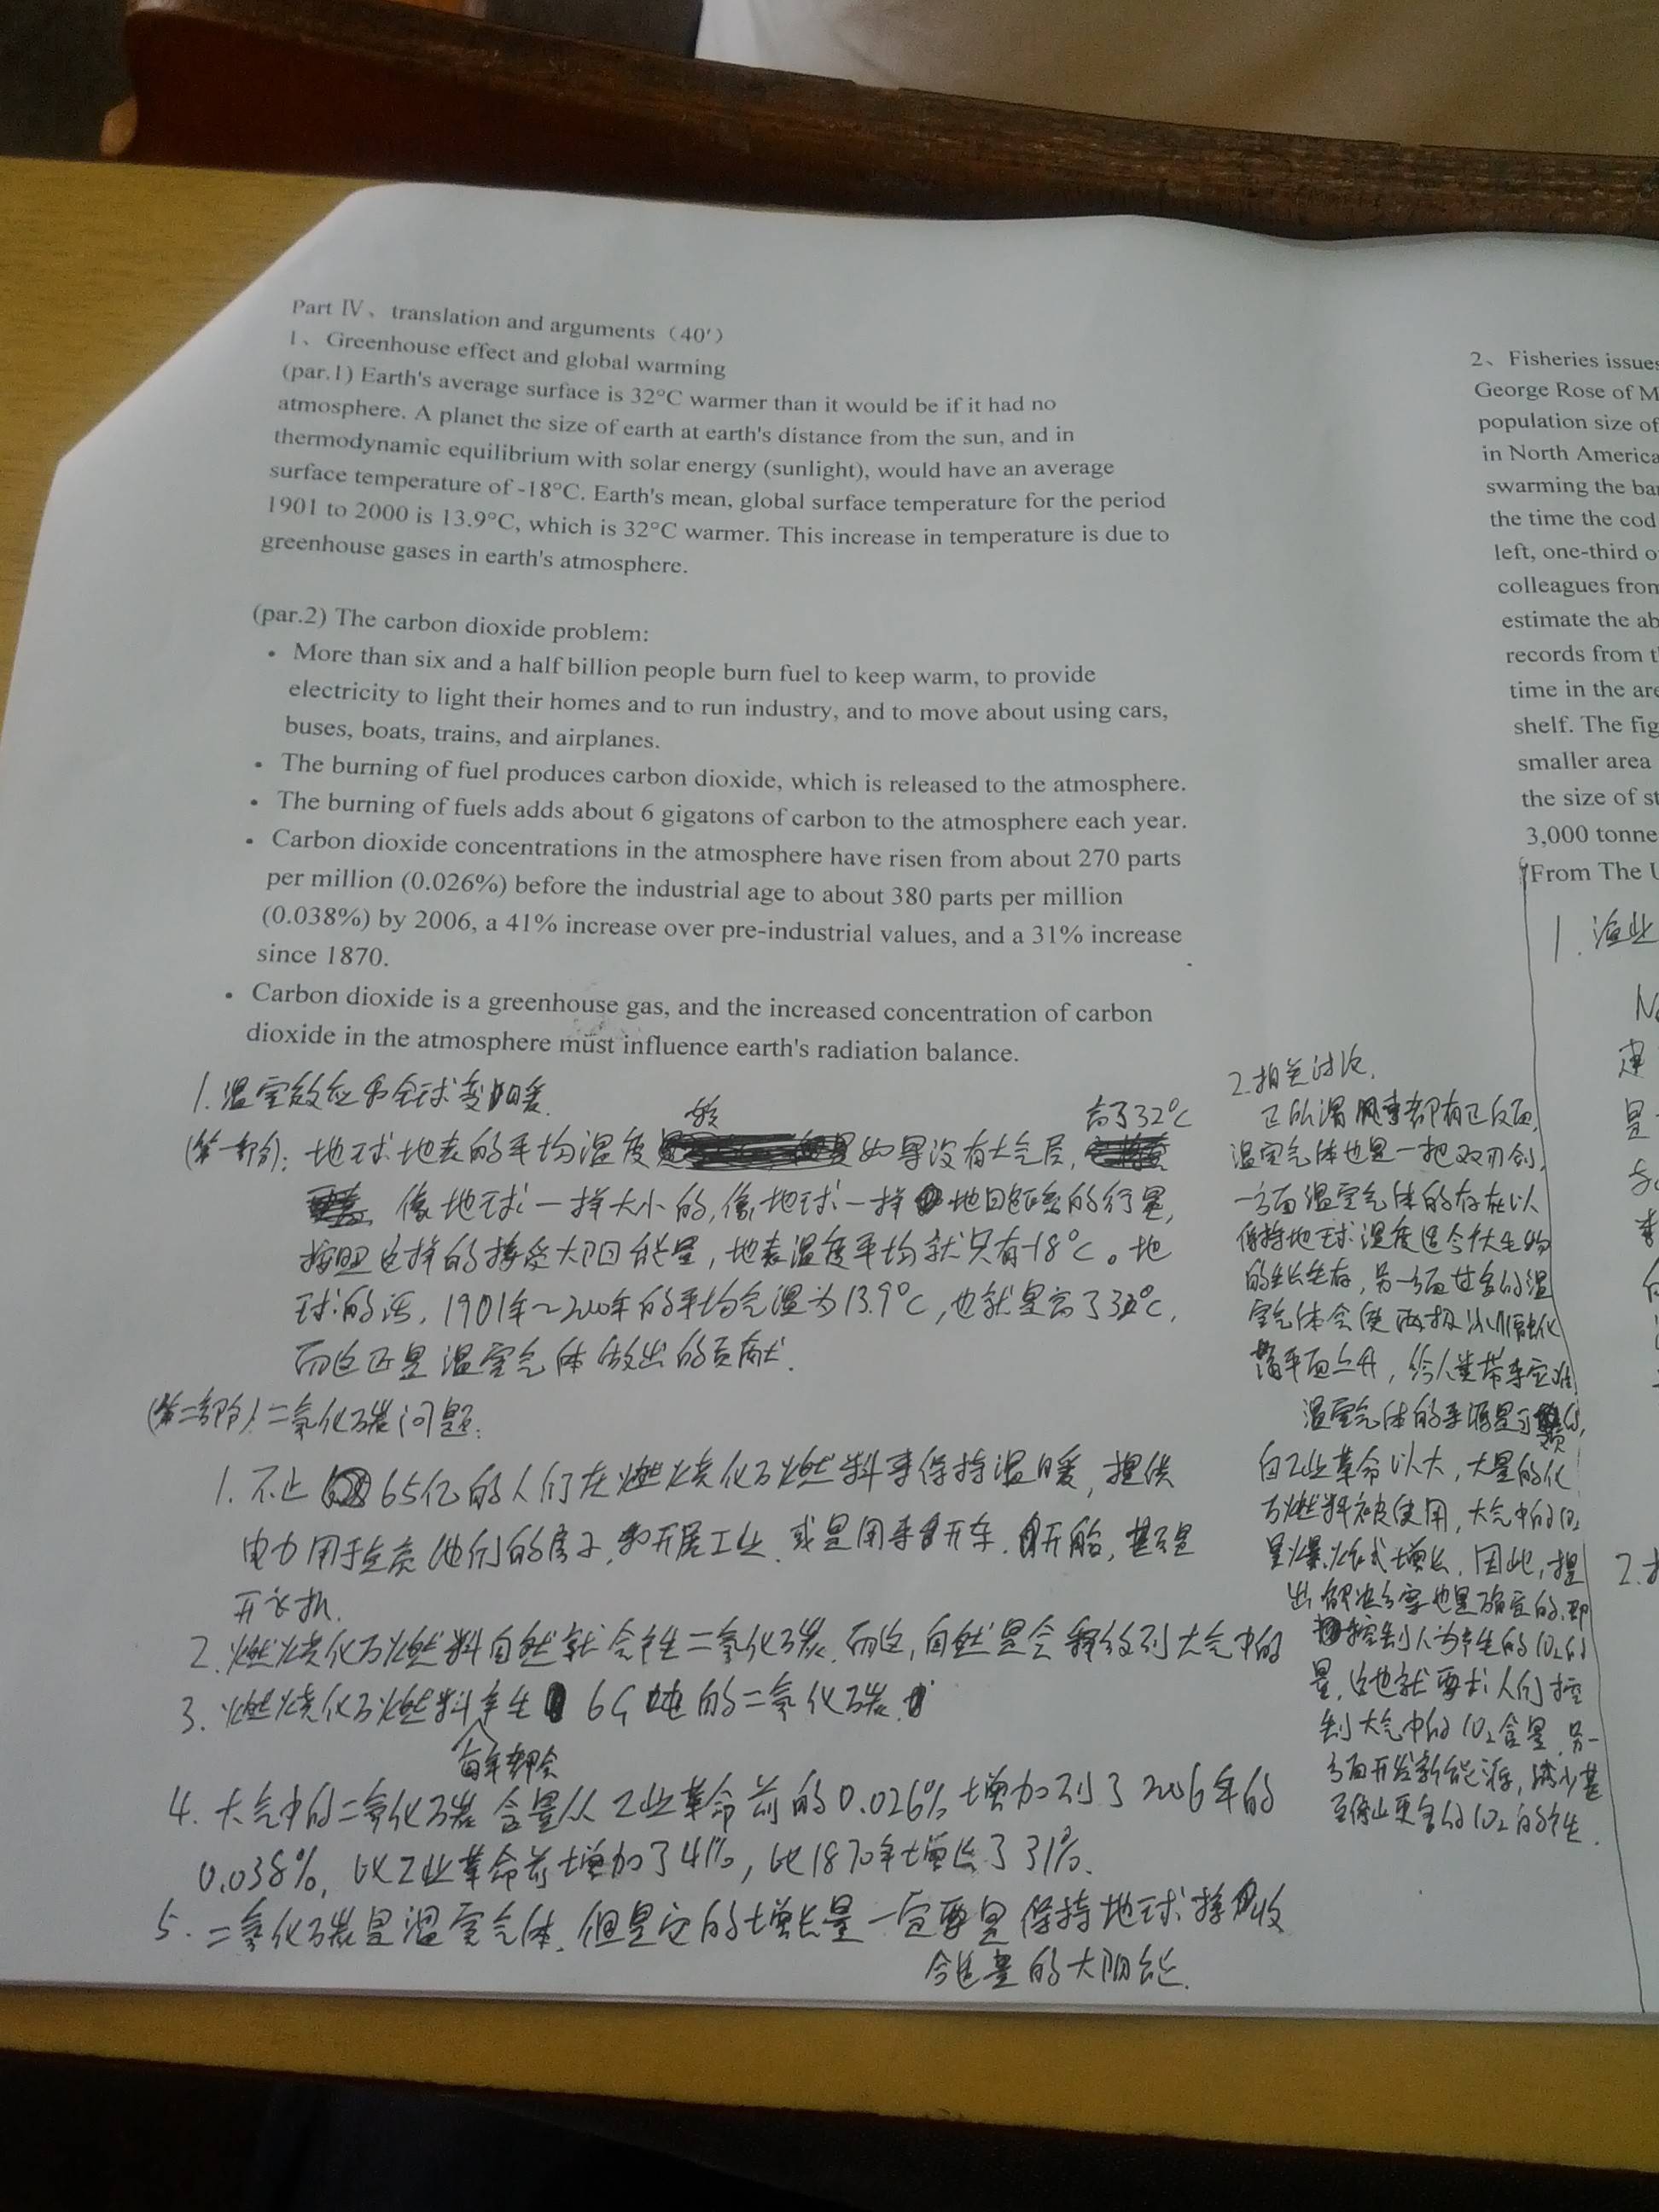 Part Ⅳ、translation and arguments（40′）
1、Greenhouse effect and global warming
(par.1) Earth's average surface is 32°C warmer than it would be if it had no
atmosphere. A planet the size of earth at earth's distance from the sun, and in
thermodynamic equilibrium with solar energy (sunlight), would have an average
surface temperature of -18°C. Earth's mean, global surface temperature for the period
1901 to 2000 is 13.9°C, which is 32°C warmer. This increase in temperature is due to
greenhouse gases in earth's atmosphere.
(par.2) The carbon dioxide problem:
• More than six and a half billion people burn fuel to keep warm, to provide
electricity to light their homes and to run industry, and to move about using cars,
buses, boats, trains, and airplanes.
• The burning of fuel produces carbon dioxide, which is released to the atmosphere.
• The burning of fuels adds about 6 gigatons of carbon to the atmosphere each year.
• Carbon dioxide concentrations in the atmosphere have risen from about 270 parts
per million (0.026%) before the industrial age to about 380 parts per million
(0.038%) by 2006, a 41% increase over pre-industrial values, and a 31% increase
since 1870.
• Carbon dioxide is a greenhouse gas, and the increased concentration of carbon
dioxide in the atmosphere must influence earth's radiation balance.
1.温室效应和全球变暖
(第一部分):地球地表的平均温度较如果没有大气层,高了32°C
像地球一样大小的,像地球一样地日距离的行星,
按照这样的接受太阳能量,地表温度平均就只有-18°C。地
球的话,1901年~2000年的平均气温为13.9°C,也就是高了32°C,
而这正是温室气体做出的贡献.
(第二部分)二氧化碳问题:
1.不止65亿的人们在燃烧化石燃料来保持温暖,提供
电力用于点亮他们的房子,和开展工业,或是用来开车,开船,甚至是
开飞机.
2.燃烧化石燃料自然就会产生二氧化碳.而这,自然是会释放到大气中的
3.燃烧化石燃料每年都会产生6G吨的二氧化碳.
4.大气中的二氧化碳含量从工业革命前的0.026%增加到了2006年的
0.038%,比工业革命前增加了41%,比1870年增长了31%.
5.二氧化碳是温室气体,但是它的增长量一定要是保持地球接收
合适量的太阳能.
2.相关讨论.
正所谓凡事都有正反面,
温室气体也是一把双刃剑,
一方面温室气体的存在以
保持地球温度适合生物
的生长生存,另一方面过多的温
室气体会使两极冰川融化
海平面上升,给人类带来灾难
温室气体的来源是
自工业革命以大,大量的化
石燃料被使用,大气中的CO2
呈爆炸式增长,因此,提
出解决方案也是确定的,即
控制人为产生的CO2的
量,这也就要求人们控
制大气中的CO2含量,另一
方面开发新能源,减少甚
至停止更多的CO2的产生.
2、Fisheries issues
George Rose of M
population size of
in North America
swarming the
the time the cod
left, one-third
colleagues from
estimate the
records from
time in the
shelf. The
smaller area
the size of
3,000 tonne
From The
1.渔业